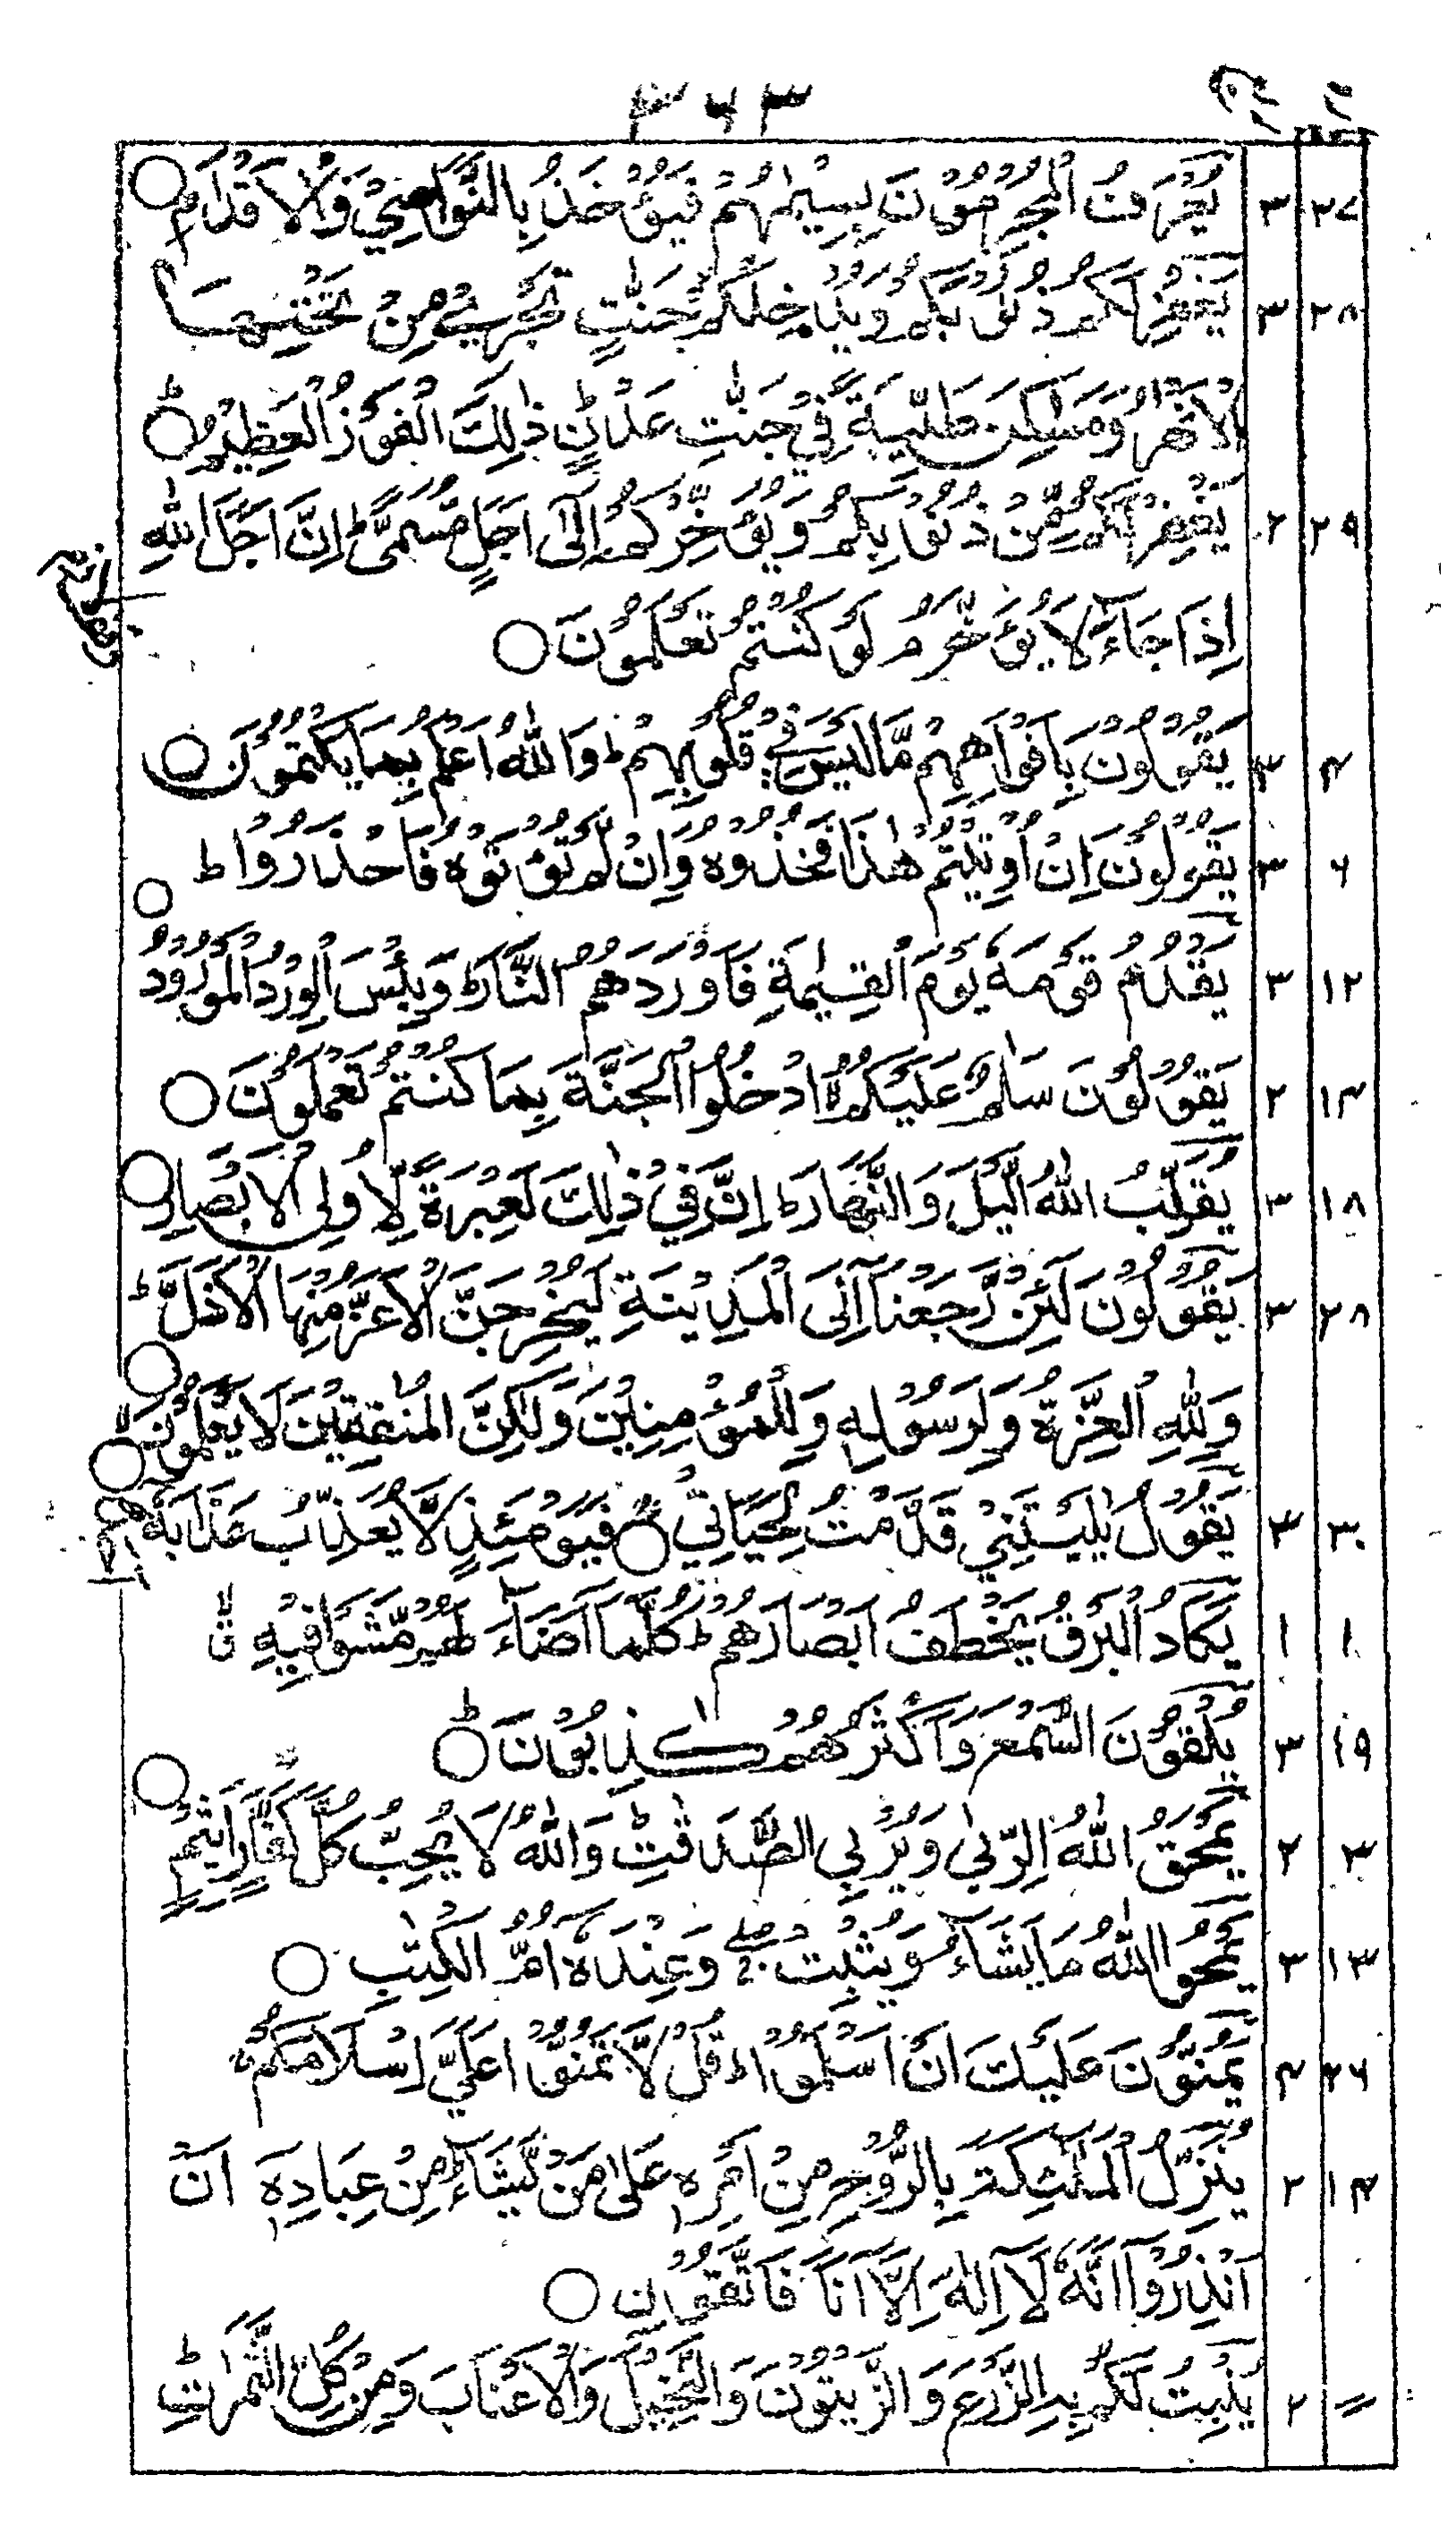 ٣٦٣
٢٧ ٣ يُعْرَفُ الْمُجْرِمُوْنَ بِسِيْمٰهُمْ فَيُؤْخَذُ بِالنَّوَاصِيْ وَالْاَقْدَامِ ○
٢٨ ٣ يَغْفِرْ لَكُمْ ذُنُوْبَكُمْ وَيُدْخِلْكُمْ جَنّٰتٍ تَجْرِيْ مِنْ تَحْتِهَا
الْاَنْهٰرُ وَمَسٰكِنَ طَيِّبَةً فِيْ جَنّٰتِ عَدْنٍ ط ذٰلِكَ الْفَوْزُ الْعَظِيْمُ ○ ط
٢٩ ٢ يَغْفِرْ لَكُمْ مِّنْ ذُنُوْبِكُمْ وَيُؤَخِّرْكُمْ اِلٰٓى اَجَلٍ مُّسَمًّى ط اِنَّ اَجَلَ اللّٰهِ
اِذَا جَآءَ لَا يُؤَخَّرُ م لَوْ كُنْتُمْ تَعْلَمُوْنَ ○
٤ ٣ يَقُوْلُوْنَ بِاَفْوَاهِهِمْ مَّا لَيْسَ فِيْ قُلُوْبِهِمْ ط وَاللّٰهُ اَعْلَمُ بِمَا يَكْتُمُوْنَ ○
٦ ٣ يَقُوْلُوْنَ اِنْ اُوْتِيْتُمْ هٰذَا فَخُذُوْهُ وَاِنْ لَّمْ تُؤْتَوْهُ فَاحْذَرُوْا ط
١٢ ٣ يَقْدُمُ قَوْمَهٗ يَوْمَ الْقِيٰمَةِ فَاَوْرَدَهُمُ النَّارَ ط وَبِئْسَ الْوِرْدُ الْمَوْرُوْدُ ○
١٤ ٢ يَقُوْلُوْنَ سَلٰمٌ عَلَيْكُمُ لا ادْخُلُوا الْجَنَّةَ بِمَا كُنْتُمْ تَعْمَلُوْنَ ○
١٨ ٣ يُقَلِّبُ اللّٰهُ الَّيْلَ وَالنَّهَارَ ط اِنَّ فِيْ ذٰلِكَ لَعِبْرَةً لِّاُولِى الْاَبْصَارِ ○
٢٨ ٣ يَقُوْلُوْنَ لَئِنْ رَّجَعْنَآ اِلَى الْمَدِيْنَةِ لَيُخْرِجَنَّ الْاَعَزُّ مِنْهَا الْاَذَلَّ ط
وَلِلّٰهِ الْعِزَّةُ وَلِرَسُوْلِهٖ وَلِلْمُؤْمِنِيْنَ وَلٰكِنَّ الْمُنٰفِقِيْنَ لَا يَعْلَمُوْنَ ○
٣٠ ٣ يَقُوْلُ يٰلَيْتَنِيْ قَدَّمْتُ لِحَيَاتِيْ ○ فَيَوْمَئِذٍ لَّا يُعَذِّبُ عَذَابَهٗٓ ○
١ ١ يَكَادُ الْبَرْقُ يَخْطَفُ اَبْصَارَهُمْ ط كُلَّمَآ اَضَآءَ لَهُمْ مَّشَوْا فِيْهِ ق لا
١٩ ٣ يُلْقُوْنَ السَّمْعَ وَاَكْثَرُهُمْ كٰذِبُوْنَ ○ ط
٣ ٢ يَمْحَقُ اللّٰهُ الرِّبٰى وَيُرْبِي الصَّدَقٰتِ ط وَاللّٰهُ لَا يُحِبُّ كُلَّ كَفَّارٍ اَثِيْمٍ ○
١٣ ٣ يَمْحُوا اللّٰهُ مَا يَشَآءُ وَيُثْبِتُ ج صلے وَعِنْدَهٗٓ اُمُّ الْكِتٰبِ ○
٢٦ ٤ يَمُنُّوْنَ عَلَيْكَ اَنْ اَسْلَمُوْا ط قُلْ لَّا تَمُنُّوْا عَلَيَّ اِسْلَامَكُمْ ج
١٤ ٢ يُنَزِّلُ الْمَلٰٓئِكَةَ بِالرُّوْحِ مِنْ اَمْرِهٖ عَلٰى مَنْ يَّشَآءُ مِنْ عِبَادِهٖٓ اَنْ
اَنْذِرُوْٓا اَنَّهٗ لَآ اِلٰهَ اِلَّآ اَنَا فَاتَّقُوْنِ ○
〃 ٢ يُنْۢبِتُ لَكُمْ بِهِ الزَّرْعَ وَالزَّيْتُوْنَ وَالنَّخِيْلَ وَالْاَعْنَابَ وَمِنْ كُلِّ الثَّمَرٰتِ ط